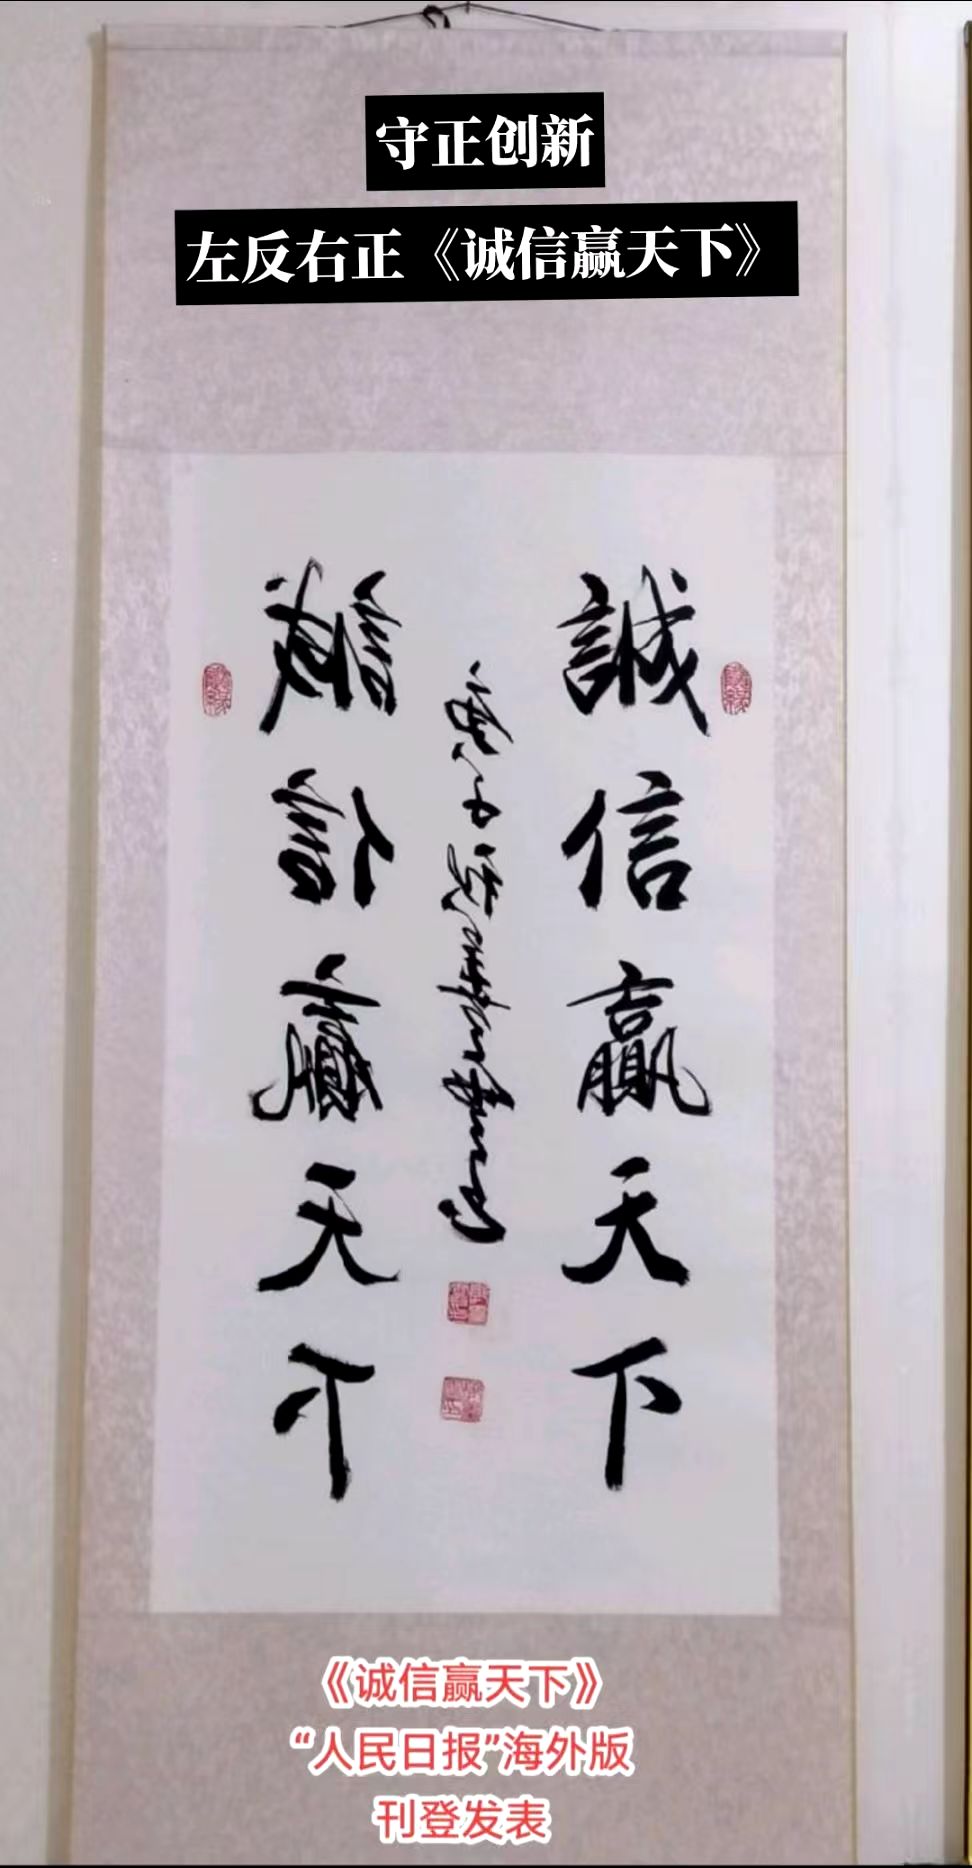 守正创新
左反右正《诚信赢天下》
誠信贏天下
誠信贏天下
《诚信赢天下》
“人民日报”海外版
刊登发表